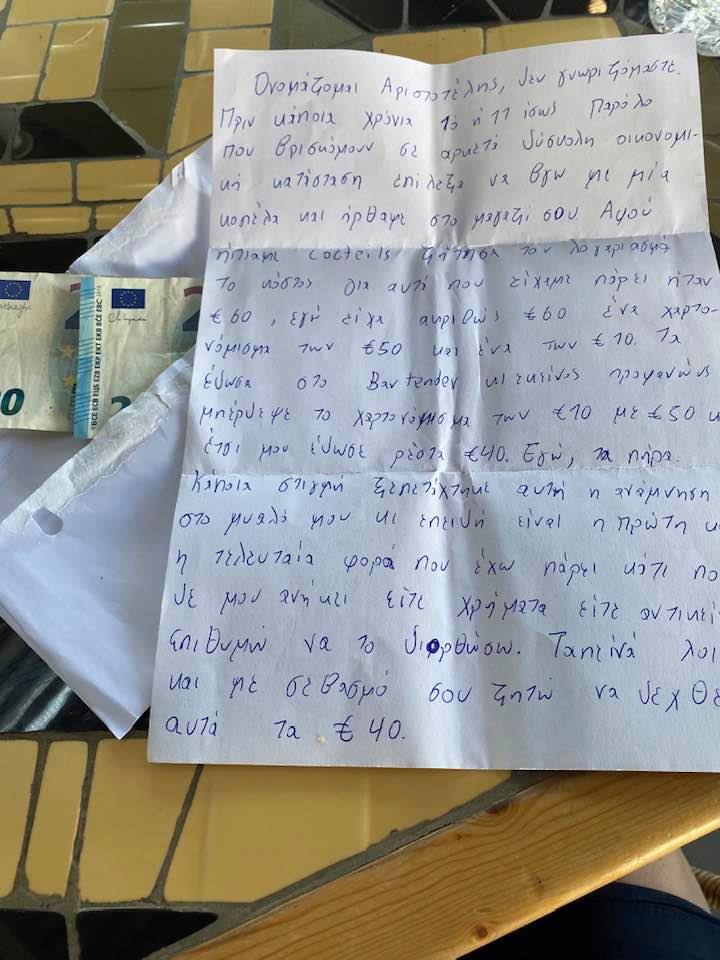 Ονομάζομαι Αριστοτέλης, δεν γνωριζόμαστε.
Πριν κάποια χρόνια 10 ή 11 ίσως παρόλο
που βρισκόμουν σε αρκετά δύσκολη οικονομι-
κή κατάσταση επέλεξα να βγω με μία
κοπέλα και ήρθαμε στο μαγαζί σου. Αφού
ήπιαμε cocteils ζήτησα τον λογαριασμό
το κόστος για αυτά που είχαμε πάρει ήταν
€60, εγώ είχα ακριβώς €60 ένα χαρτο-
νόμισμα των €50 και ένα των €10. Τα
έδωσα στο Bartender κι εκείνος προφανώς
μπέρδεψε το χαρτονόμισμα των €10 με €50 κ
έτσι μου έδωσε ρέστα €40. Εγώ, τα πήρα.
Κάποια στιγμή ξεπετάχτηκε αυτή η ανάμνηση
στο μυαλό μου κι επειδή είναι η πρώτη κ
η τελευταία φορά που έχω πάρει κάτι πο
δε μου ανήκει είτε χρήματα είτε αντικεί
επιθυμώ να το διορθώσω. Ταπεινά λοι
και με σεβασμό σου ζητώ να δεχθε
αυτά τα €40.
BCE ECB EZB EKP EKT EKB BĊE EBC